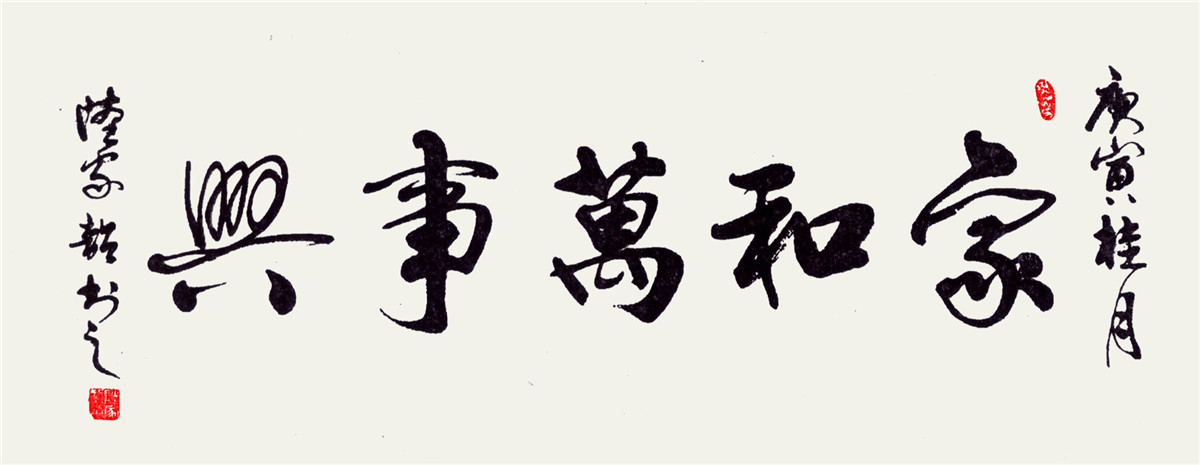 庚寅桂月
家和萬事興
陸家韶書之